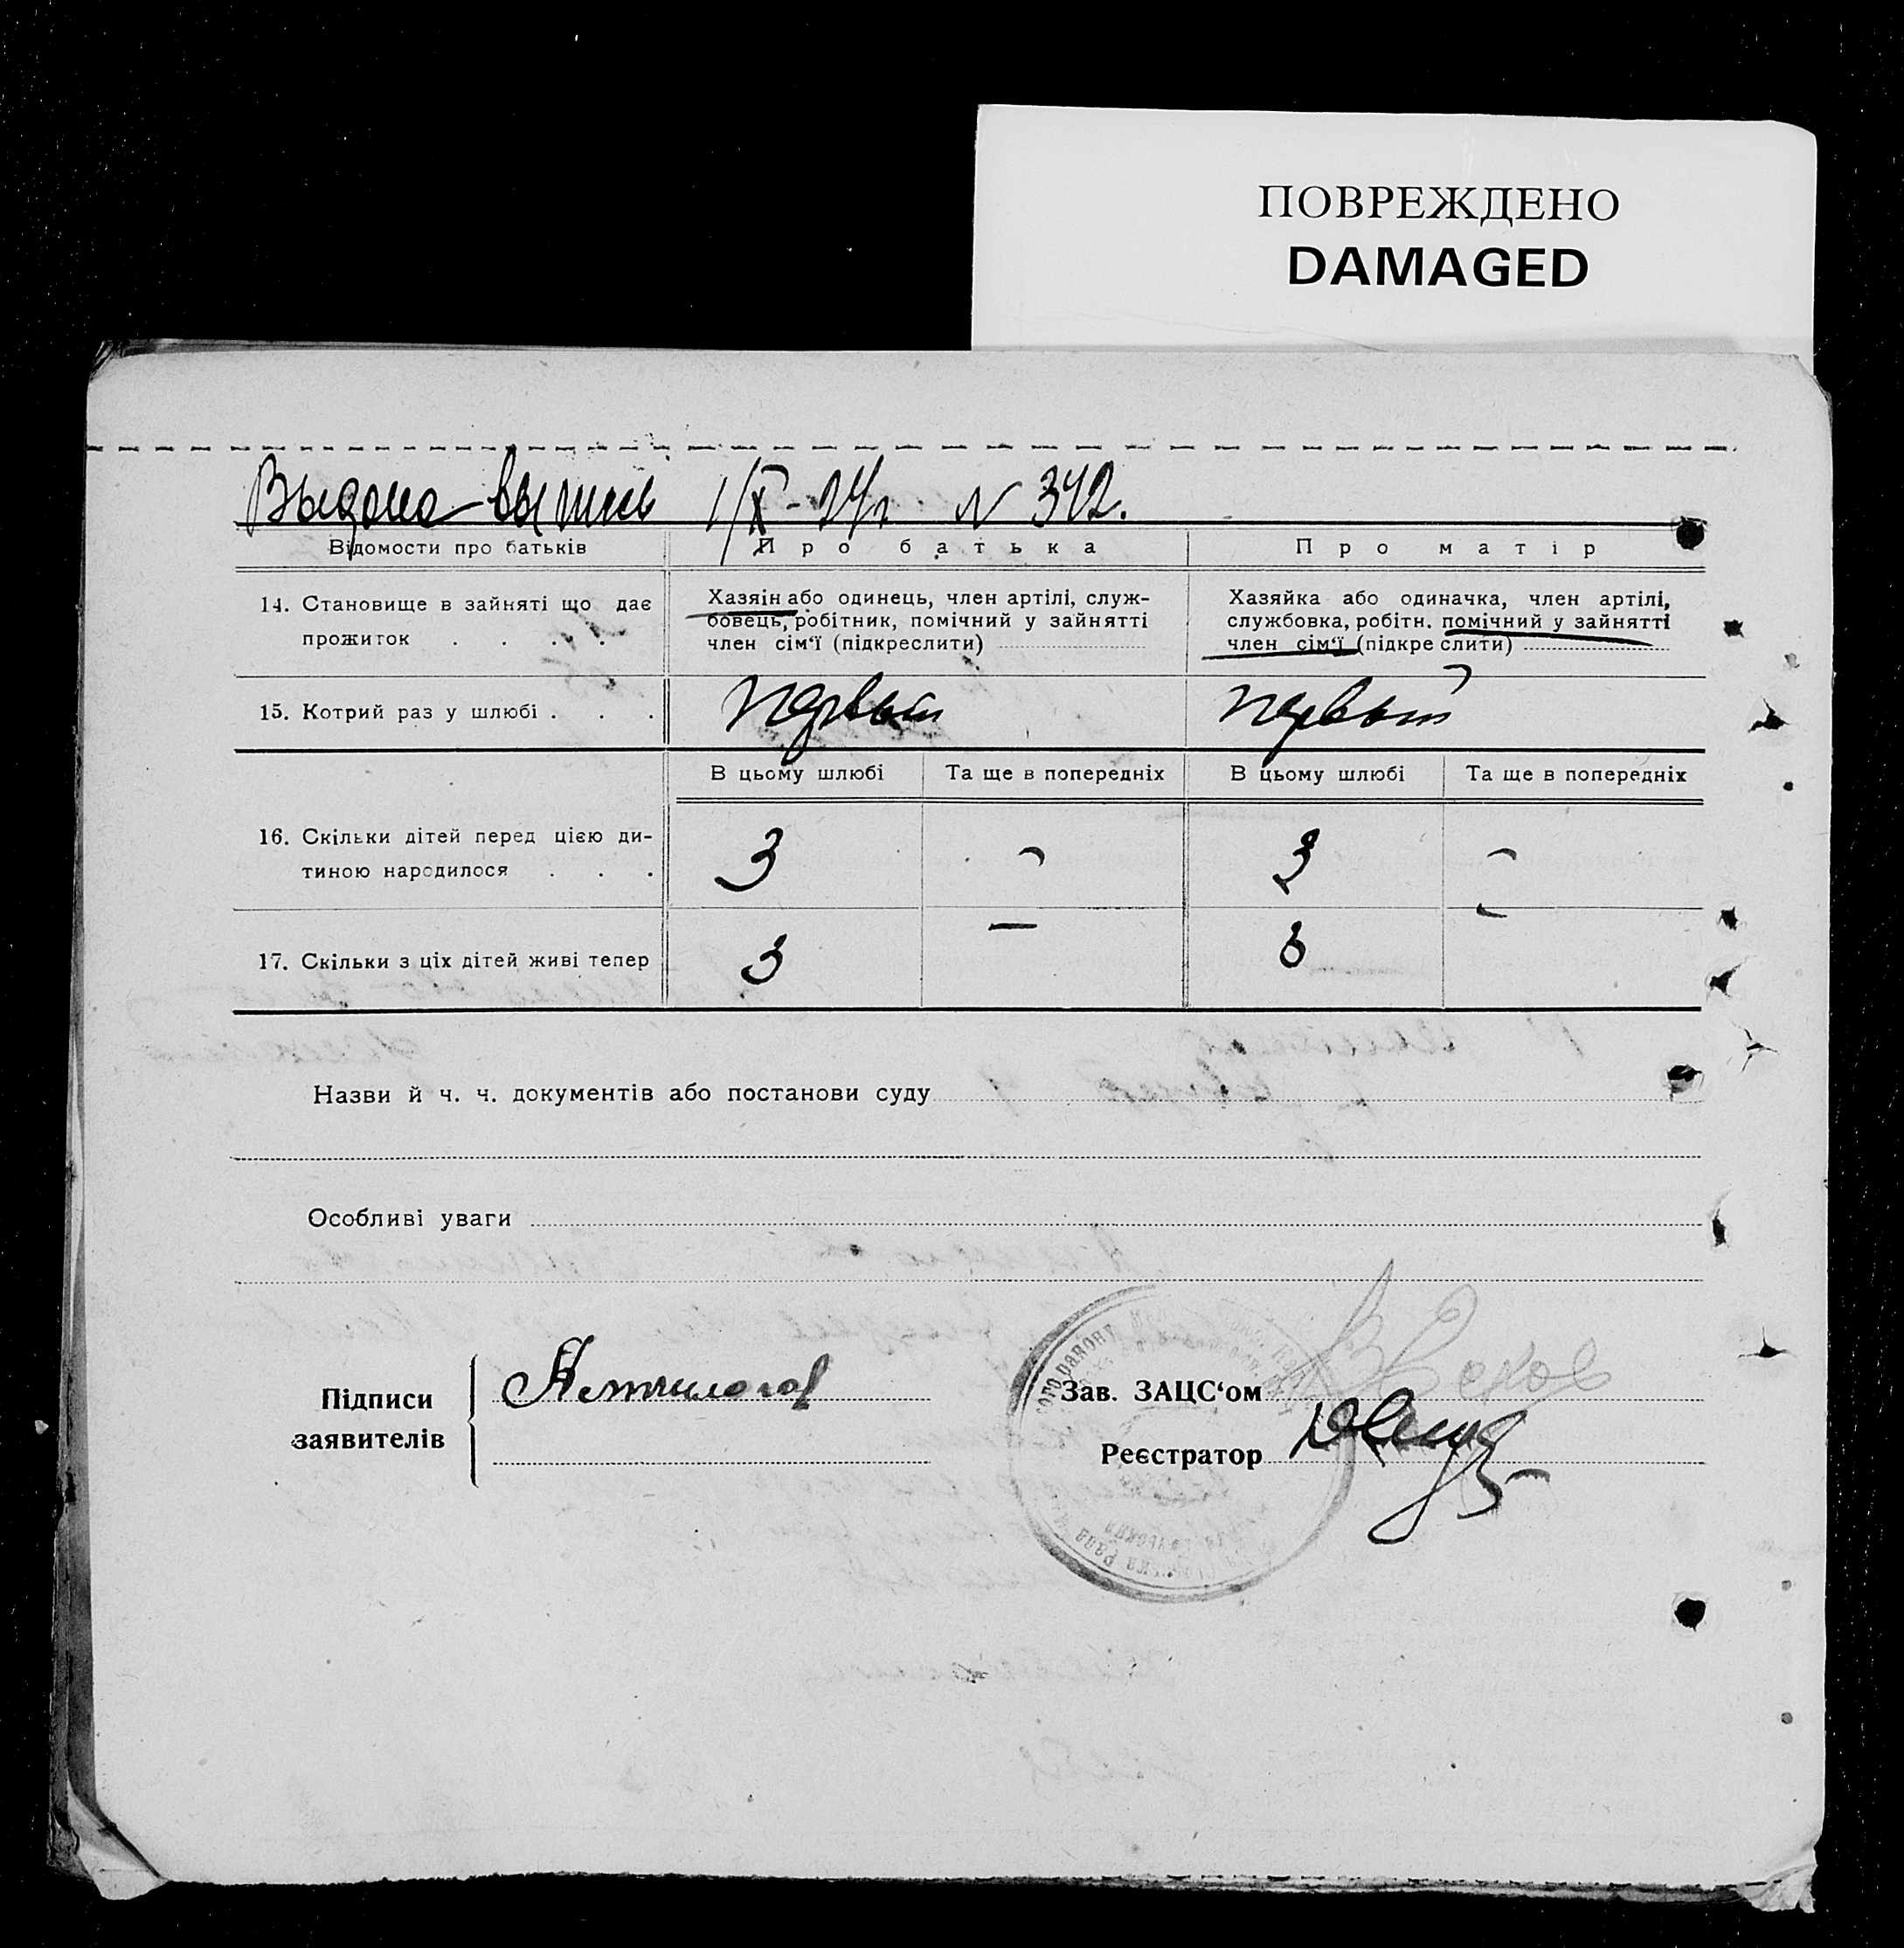 ПОВРЕЖДЕНО
DAMAGED
Выдана выпись 1/X-24г N 342.
Відомости про батьків Про батька Про матір
14. Становище в зайняті що дає
прожиток . . . .
Хазяін або одинець, член артілі, служ-
бовець, робітник, помічний у зайнятті
член сім‘ї (підкреслити)
Хазяйка або одиначка, член артілі,
службовка, робітн. помічний у зайнятті
член сім‘ї (підкре слити)
15. Котрий раз у шлюбі . . . первый первый
В цьому шлюбі Та ще в попередніх В цьому шлюбі Та ще в попередніх
16. Скільки дітей перед цією ди-
тиною народилося . . . 3 - 3 -
17. Скільки з ціх дітей живі тепер 3 — 3 -
Назви й ч. ч. документів або постанови суду
Особливі уваги
Підписи
заявителів
Зав. ЗАЦС‘ом
Реєстратор